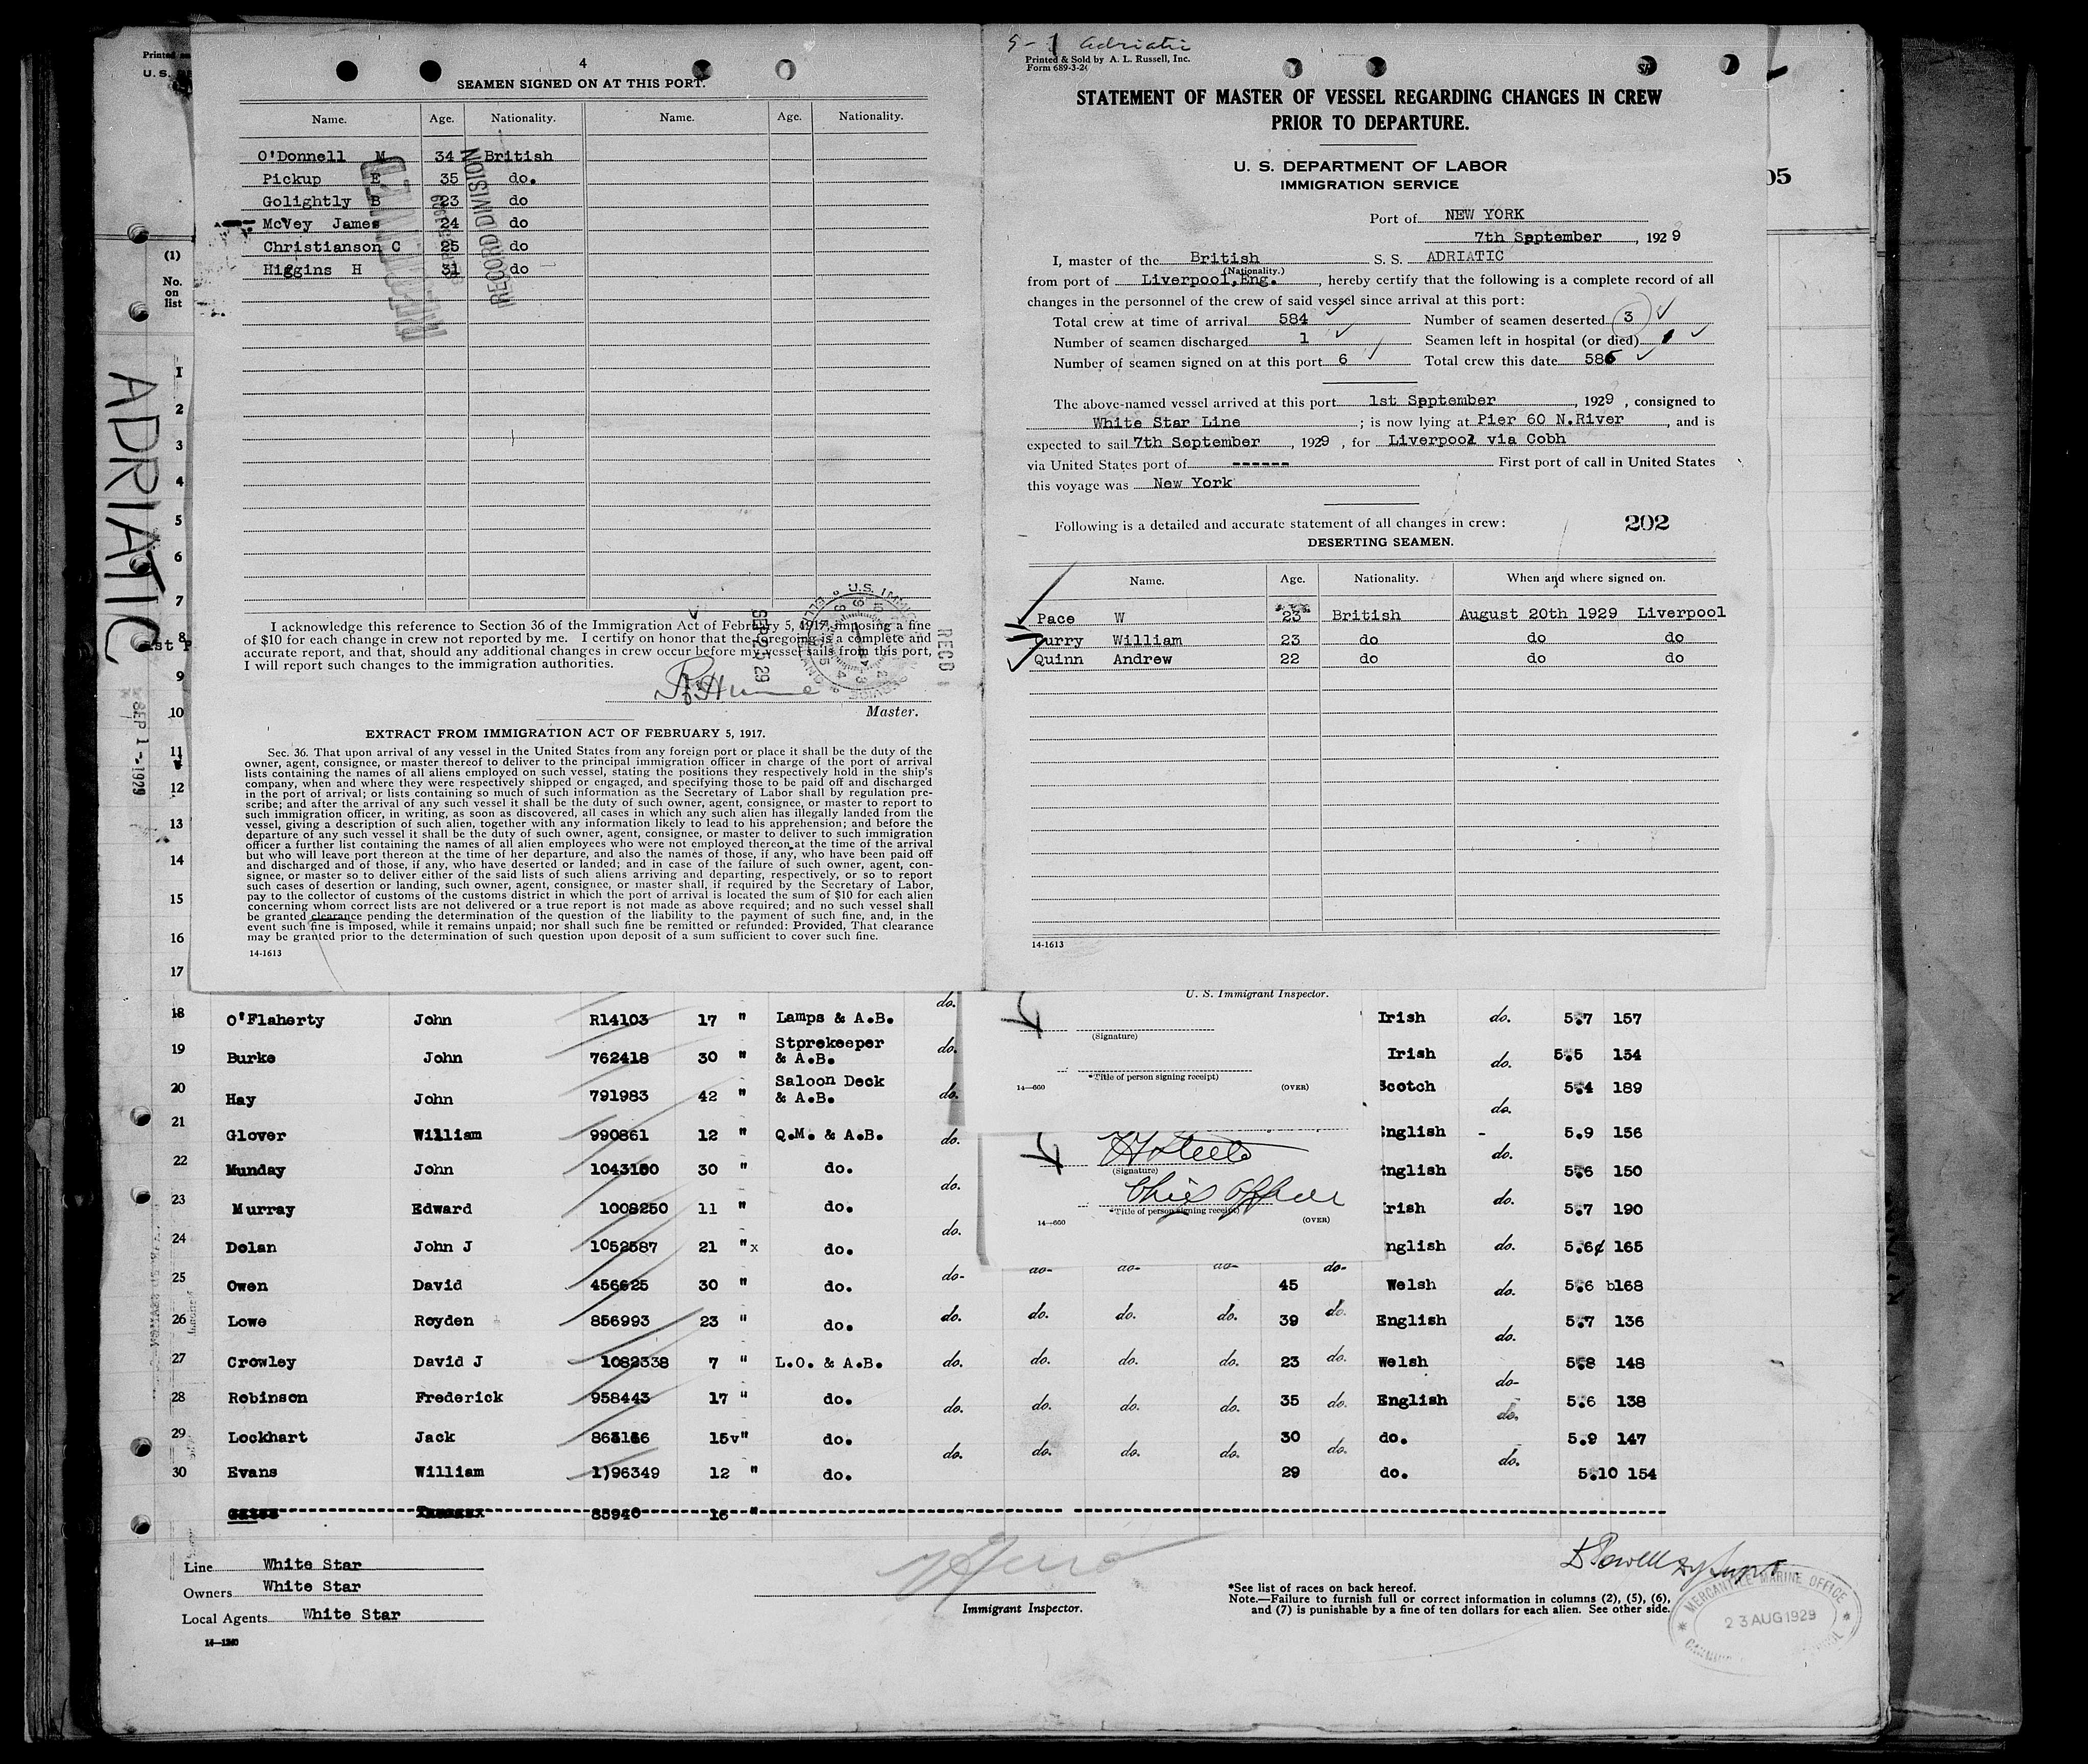 4
SEAMEN SIGNED ON AT THIS PORT.
Name. Age. Nationality. Name. Age. Nationality.
O'Donnell M 34 British
Pickup E 35 do.
Golightly B 23 do
McVey James 24 do
Christianson C 25 do
Higgins H 31 do
RECORD DIVISION
I acknowledge this reference to Section 36 of the Immigration Act of February 5, 1917, imposing a fine
of $10 for each change in crew not reported by me. I certify on honor that the foregoing is a complete and
accurate report, and that, should any additional changes in crew occur before my vessel sails from this port,
I will report such changes to the immigration authorities.
SEP 25 29
RECD
Master.
EXTRACT FROM IMMIGRATION ACT OF FEBRUARY 5, 1917.
Sec. 36. That upon arrival of any vessel in the United States from any foreign port or place it shall be the duty of the
owner, agent, consignee, or master thereof to deliver to the principal immigration officer in charge of the port of arrival
lists containing the names of all aliens employed on such vessel, stating the positions they respectively hold in the ship's
company, when and where they were respectively shipped or engaged, and specifying those to be paid off and discharged
in the port of arrival; or lists containing so much of such information as the Secretary of Labor shall by regulation pre-
scribe; and after the arrival of any such vessel it shall be the duty of such owner, agent, consignee, or master to report to
such immigration officer, in writing, as soon as discovered, all cases in which any such alien has illegally landed from the
vessel, giving a description of such alien, together with any information likely to lead to his apprehension; and before the
departure of any such vessel it shall be the duty of such owner, agent, consignee, or master to deliver to such immigration
officer a further list containing the names of all alien employees who were not employed thereon at the time of the arrival
but who will leave port thereon at the time of her departure, and also the names of those, if any, who have been paid off
and discharged and of those, if any, who have deserted or landed; and in case of the failure of such owner, agent, con-
signee, or master so to deliver either of the said lists of such aliens arriving and departing, respectively, or so to report
such cases of desertion or landing, such owner, agent, consignee, or master shall, if required by the Secretary of Labor,
pay to the collector of customs of the customs district in which the port of arrival is located the sum of $10 for each alien
concerning whom correct lists are not delivered or a true report is not made as above required; and no such vessel shall
be granted clearance pending the determination of the question of the liability to the payment of such fine, and, in the
event such fine is imposed, while it remains unpaid; nor shall such fine be remitted or refunded: Provided, That clearance
may be granted prior to the determination of such question upon deposit of a sum sufficient to cover such fine.
14-1613
Adriatic
Printed & Sold by A. L. Russell, Inc.
Form 689-3-2
STATEMENT OF MASTER OF VESSEL REGARDING CHANGES IN CREW
PRIOR TO DEPARTURE.
U. S. DEPARTMENT OF LABOR
IMMIGRATION SERVICE
Port of NEW YORK
7th September, 1929
I, master of the British S. S. ADRIATIC
(Nationality.)
from port of Liverpool,Eng., hereby certify that the following is a complete record of all
changes in the personnel of the crew of said vessel since arrival at this port:
Total crew at time of arrival 584 Number of seamen deserted 3
Number of seamen discharged 1 Seamen left in hospital (or died)
Number of seamen signed on at this port 6 Total crew this date 586
The above-named vessel arrived at this port 1st September, 1929, consigned to
White Star Line; is now lying at Pier 60 N.River, and is
expected to sail 7th September, 1929, for Liverpool via Cobh
via United States port of ------ First port of call in United States
this voyage was New York
Following is a detailed and accurate statement of all changes in crew: 202
DESERTING SEAMEN.
Name. Age. Nationality. When and where signed on.
Pace W 23 British August 20th 1929 Liverpool
Curry William 23 do do do
Quinn Andrew 22 do do do
14-1613
Printed
U. S.
05
(1)
No.
on
list
ADRIATIC
SEP 1 - 1929
1
2
3
4
5
6
7
8
9
10
11
12
13
14
15
16
17
U. S. Immigrant Inspector.
(Signature)
*Title of person signing receipt)
14—660 (OVER)
(Signature)
Chief Officer
*Title of person signing receipt)
14—660 (OVER)
18 O'Flaherty John R14103 17 " Lamps & A.B. do. Irish do. 5.7 157
19 Burke John 762418 30 " Stprekeeper & A.B. do. Irish do. 5.5 134
20 Hay John 791983 42 " Saloon Deck & A.B. do. Scotch do. 5.4 189
21 Glover William 990861 12 " Q.M. & A.B. do. English - do. 5.9 156
22 Munday John 1043180 30 " do. do. English 5.6 150
23 Murray Edward 1008250 11 " do. do. Irish do. 5.7 190
24 Dolan John J 1052587 21 "x do. English do. 5.6 165
25 Owen David 456625 30 " do. do- do- do- do- 45 do- Welsh do. 5.6 b168
26 Lowe Royden 856993 23 " do. do. do. do. do. 39 do. English do. 5.7 136
27 Crowley David J 1082338 7 " L.O. & A.B. do. do. do. do. 23 do. Welsh do- 5.8 148
28 Robinson Frederick 958443 17 " do. do. do. do. do. 35 do. English do. 5.6 138
29 Lockhart Jack 15v" do. do. do. do. do. 30 do. do. do. 5.9 147
30 Evans William 1)96349 12 " do. 29 do. 5.10 154
16 "
Line White Star
Owners White Star
Local Agents White Star
Immigrant Inspector.
*See list of races on back hereof.
Note.—Failure to furnish full or correct information in columns (2), (5), (6),
and (7) is punishable by a fine of ten dollars for each alien. See other side.
MERCANTILE MARINE OFFICE
23 AUG 1929